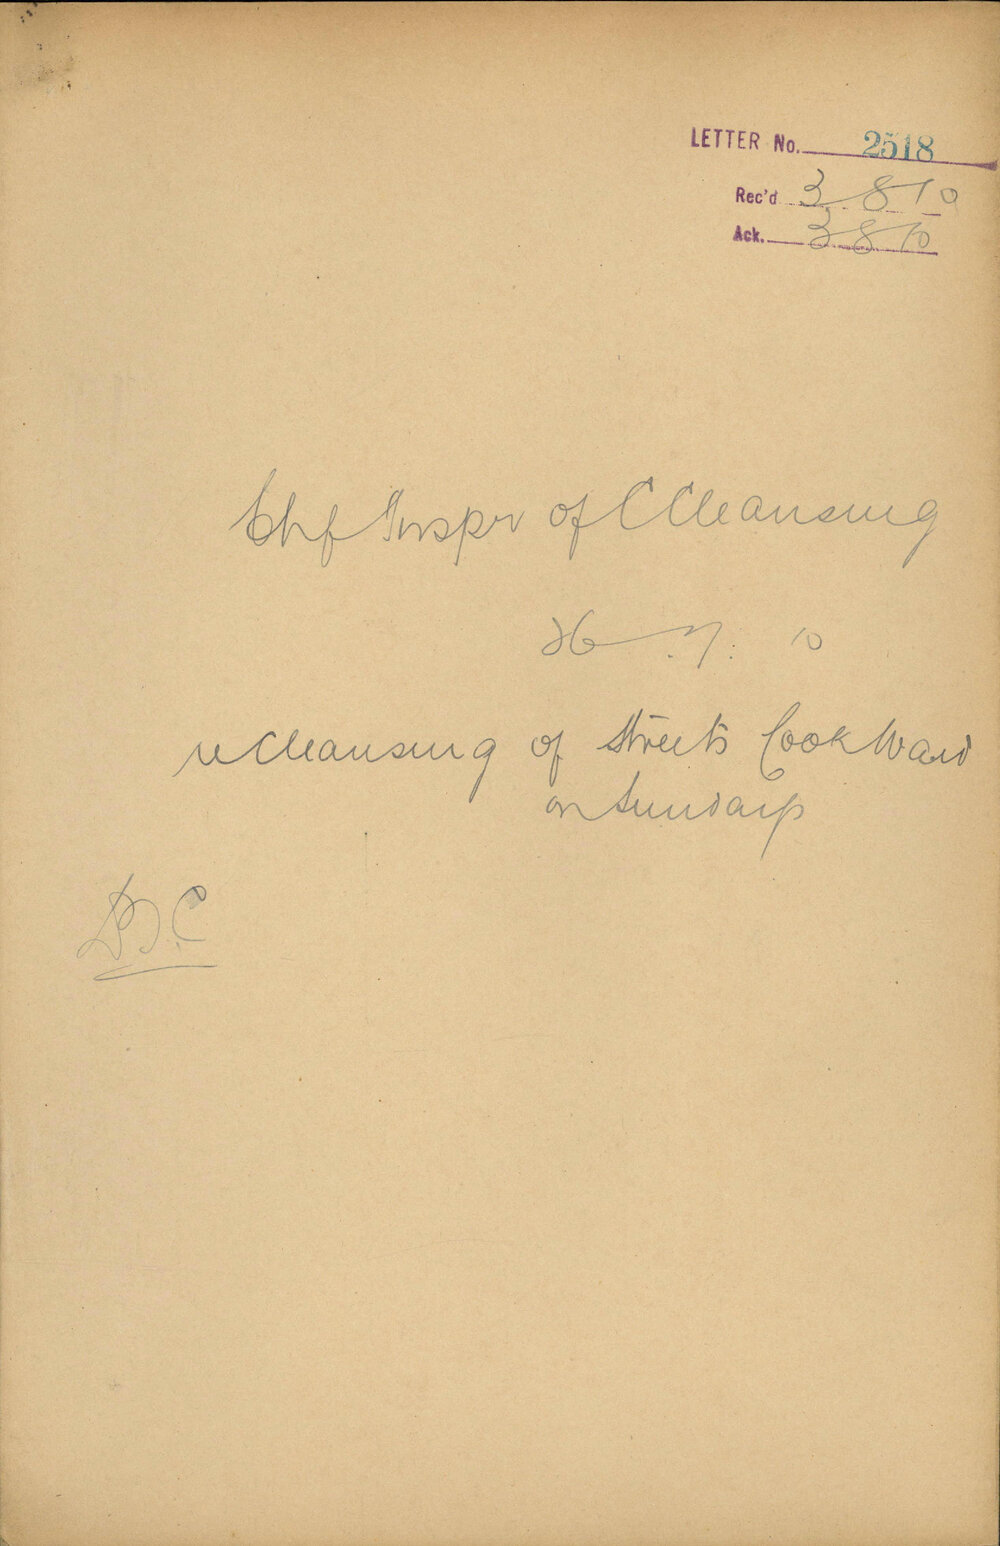 LETTER No. 2518
Rec'd 3 8 10
Ack. 3 8 10
Chf Inspr of C Cleansing
26 . 7 . 10
re Cleansing of Streets Cook Ward
on Sundays